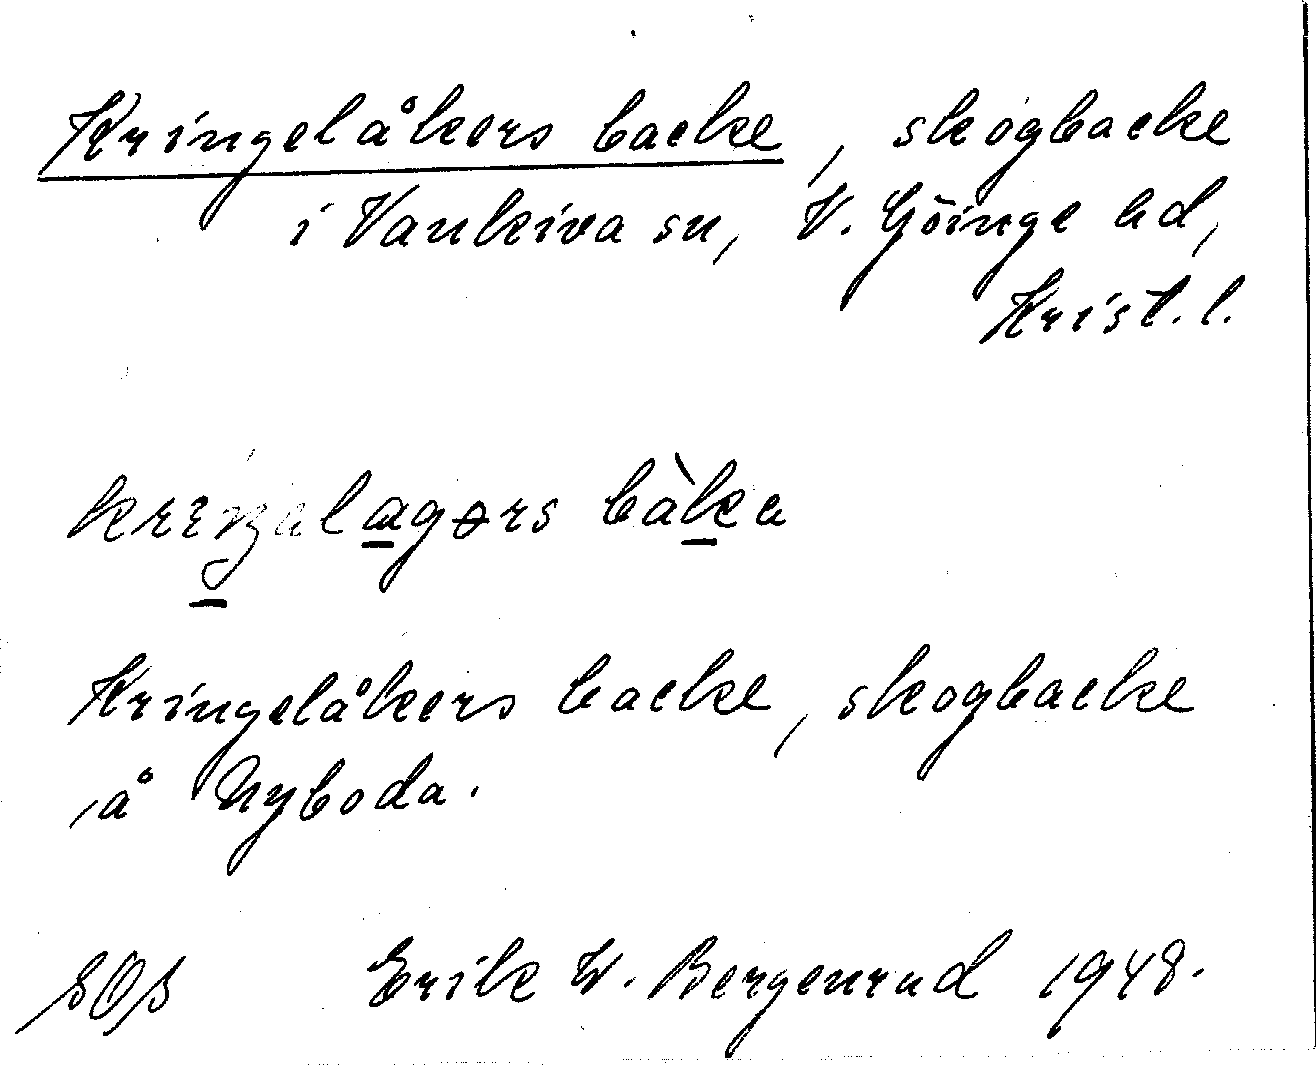 Kringelåkers backe, skogbacke
i Vankiva sn, V. Göinge hd,
Krist. l.
bàka
Kringelåkers backe, skogbacke
å Nyboda.
SOS Erik W. Bergenrud 1948.